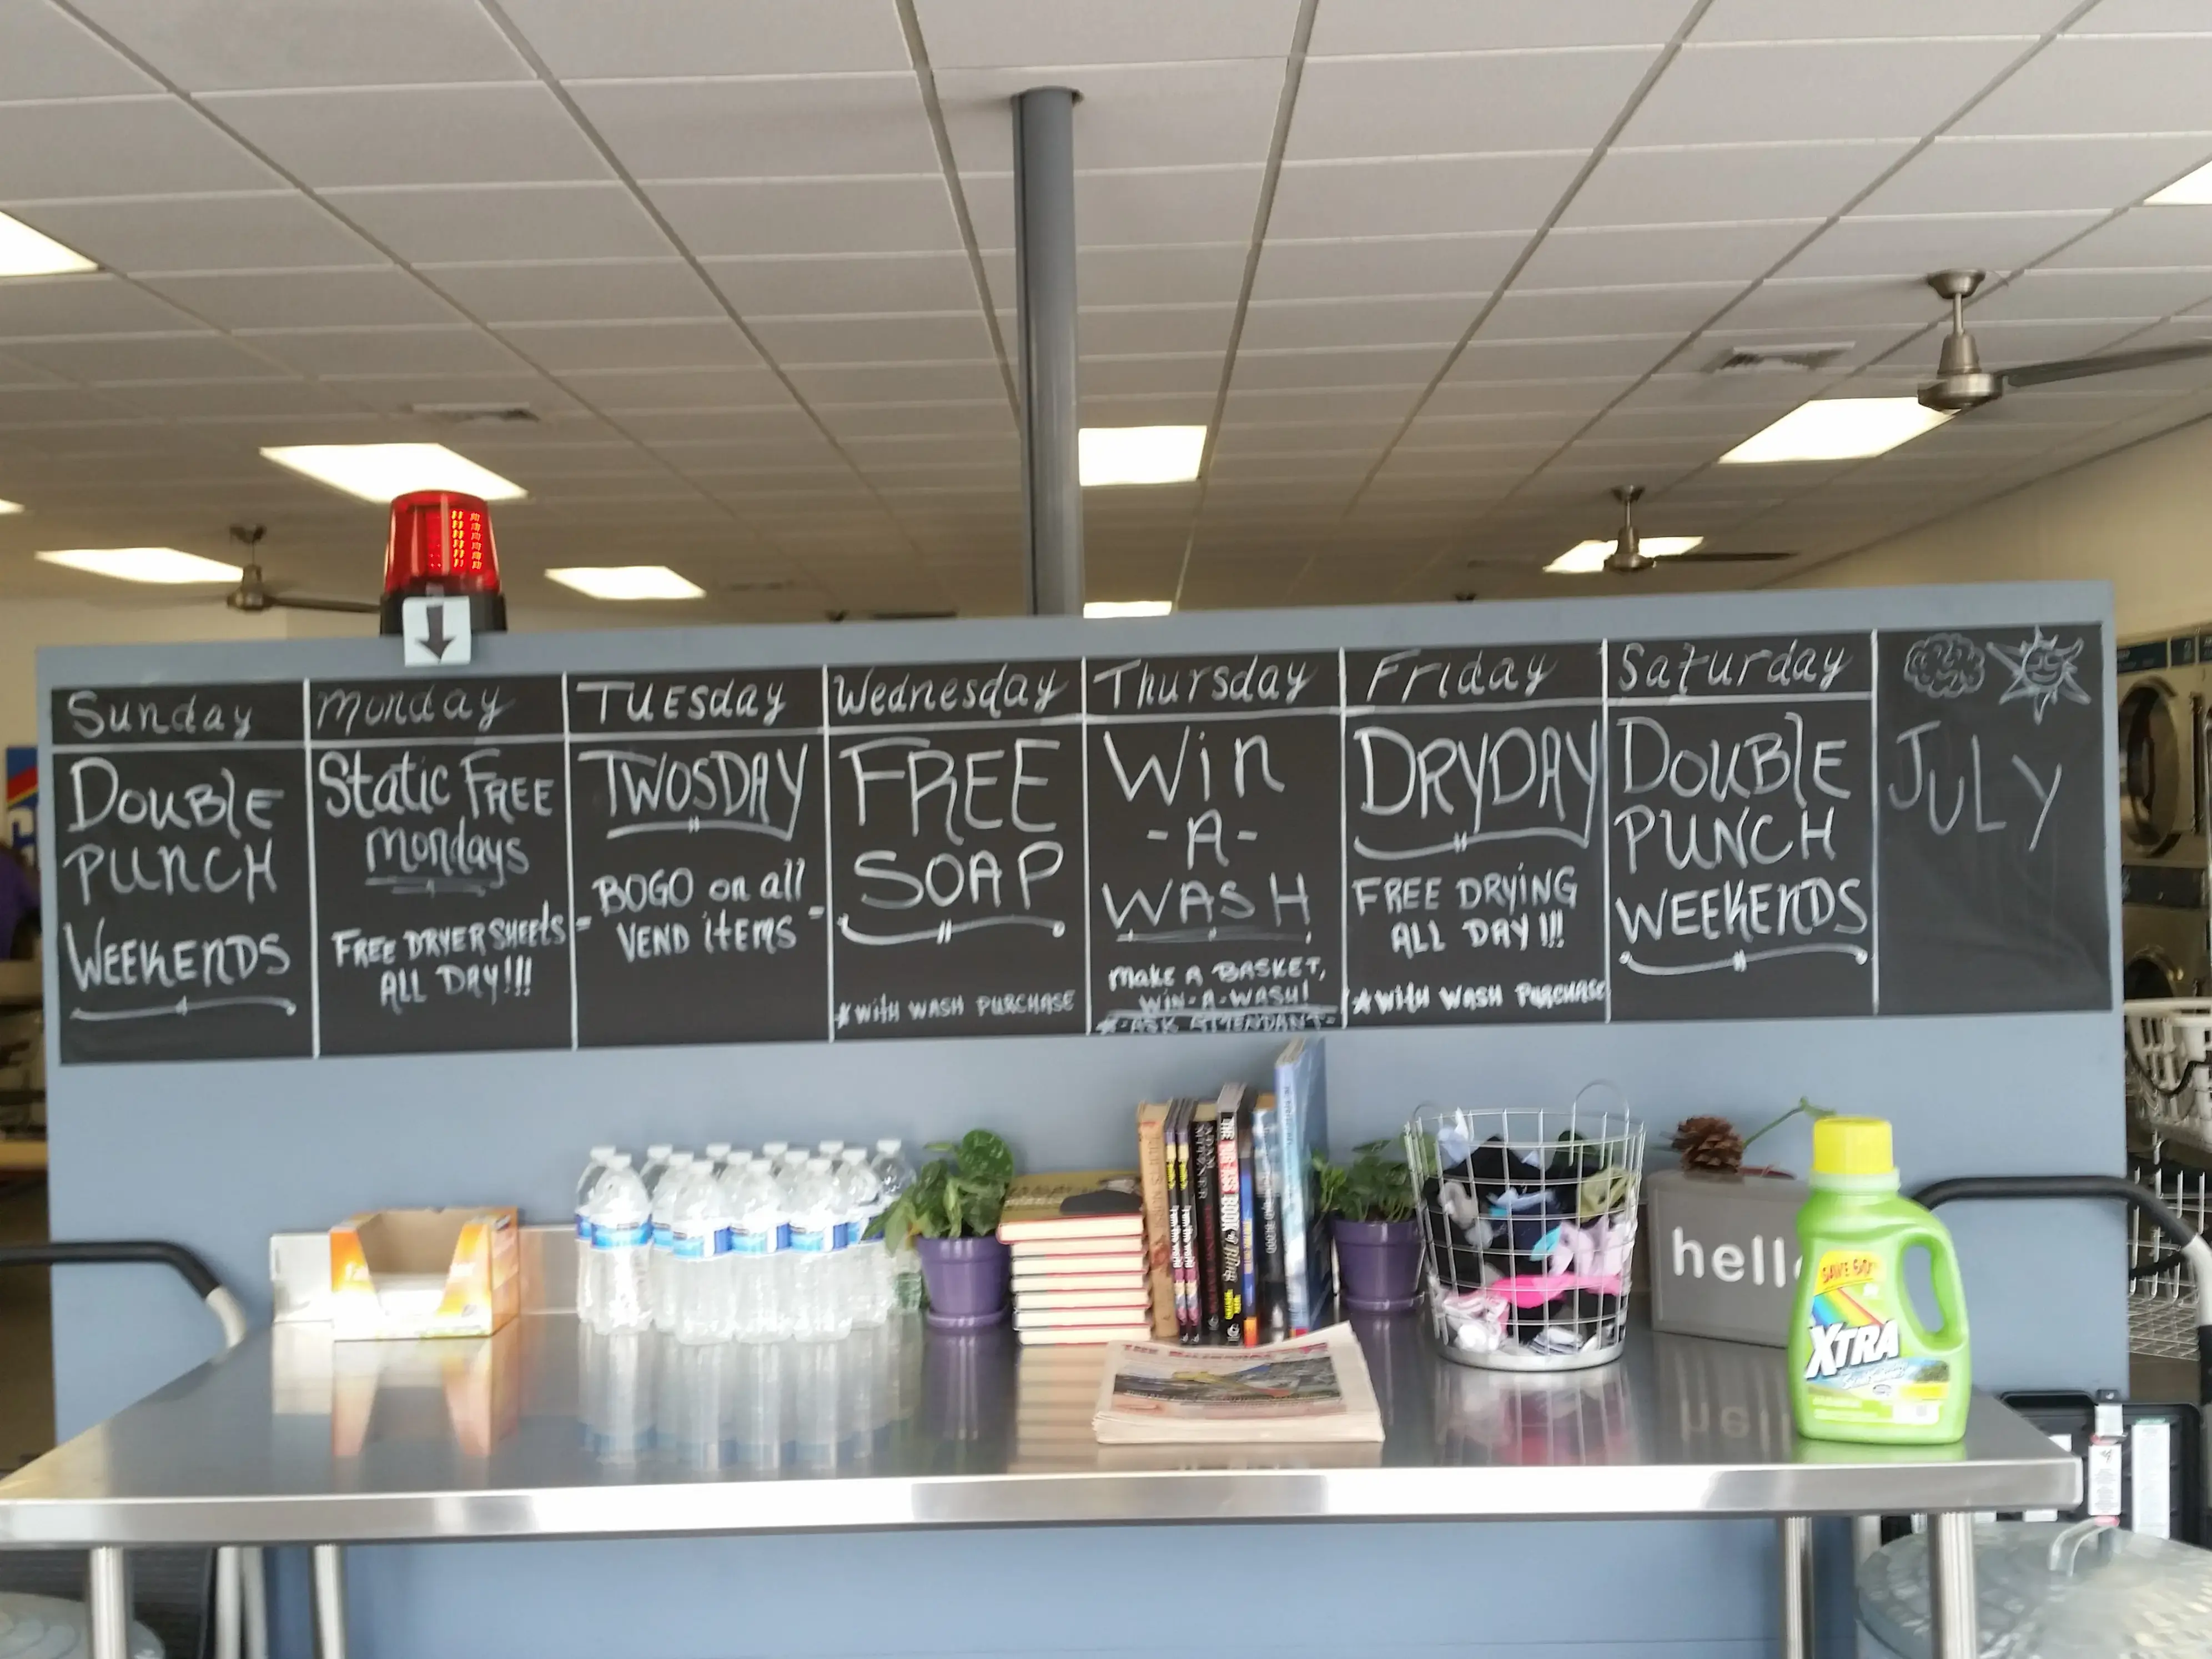 Sunday
Double
Punch
Weekends
Monday
Static Free
Mondays
Free Dryer Sheets
All Day!!!
Tuesday
Twosday
- BOGO on all -
Vend items
Wednesday
FREE
SOAP
*with wash purchase
Thursday
Win
-A-
WASH
Make A Basket,
Win-A-Wash!
*-Ask Attendant-
Friday
DRYDAY
FREE DRYING
ALL DAY!!!
*with wash purchase
Saturday
Double
Punch
Weekends
July
hell
SAVE 60
XTRA
THE BIG ASS BOOK of Bling